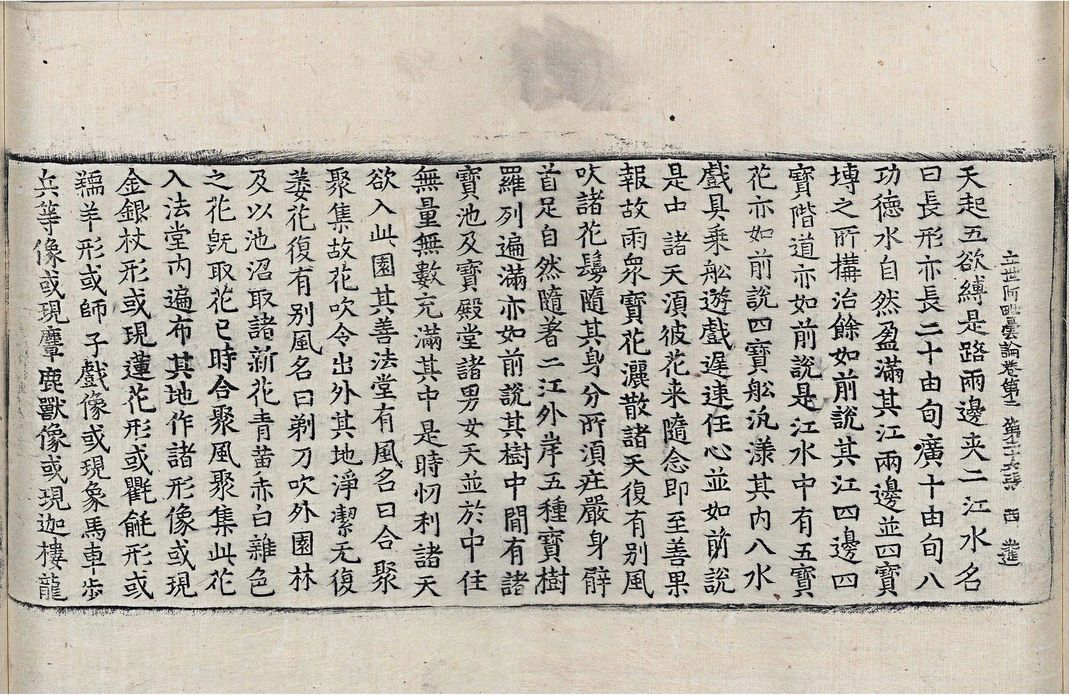 立世阿毗曇論卷第二 第二十六張 西 進
天起五欲縛是路兩邊夹二江水名
曰長形亦長二十由旬廣十由旬八
功德水自然盈滿其江兩邊並四寶
塼之所構治餘如前說其江四邊四
寶階道亦如前說是江水中有五寶
花亦如前說四寶舩汎漾其內八水
戲具乗舩遊戲遲速任心並如前說
是中諸天湏彼花来隨念即至善果
報故雨衆寶花灑散諸天復有别風
吹諸花鬘隨其身分所湏庄嚴身臂
首足自然隨著二江外岸五種寶樹
羅列遍滿亦如前說其樹中間有諸
寶池及寶殿堂諸男女天並於中住
無量無數充滿其中是時忉利諸天
欲入此園其善法堂有風名曰合聚
聚集故花吹令出外其地淨潔无復
萎花復有别風名曰剃刀吹外園林
及以池沼取諸新花青黄赤白雜色
之花既取花已時合聚風聚集此花
入法堂內遍布其地作諸形像或現
金銀杖形或現蓮花形或氍毹形或
羺羊形或師子戲像或現象馬車步
兵等像或現麞鹿獸像或現迦樓龍